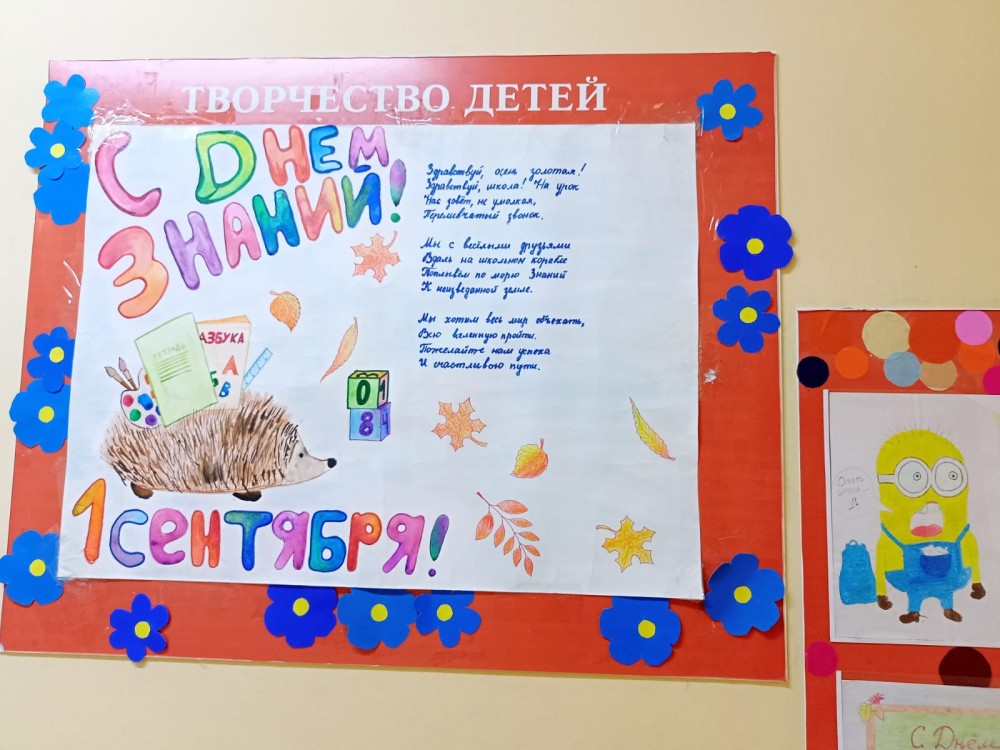 ТВОРЧЕСТВО ДЕТЕЙ
С ДНЕМ
ЗНАНИЙ!
Здравствуй, осень золотая!
Здравствуй, школа! На урок
Нас зовёт, не умолкая,
Переливчатый звонок.
Мы с весёлыми друзьями
Вдаль на школьном корабле
Поплывём по морю Знаний
К неизведанной земле.
Мы хотим весь мир объехать,
Всю вселенную пройти.
Пожелайте нам успеха
И счастливого пути.
ТЕТРАДЬ
АЗБУКА
А
Б
В
01
8
1 СЕНТЯБРЯ!
Опять
С Днём